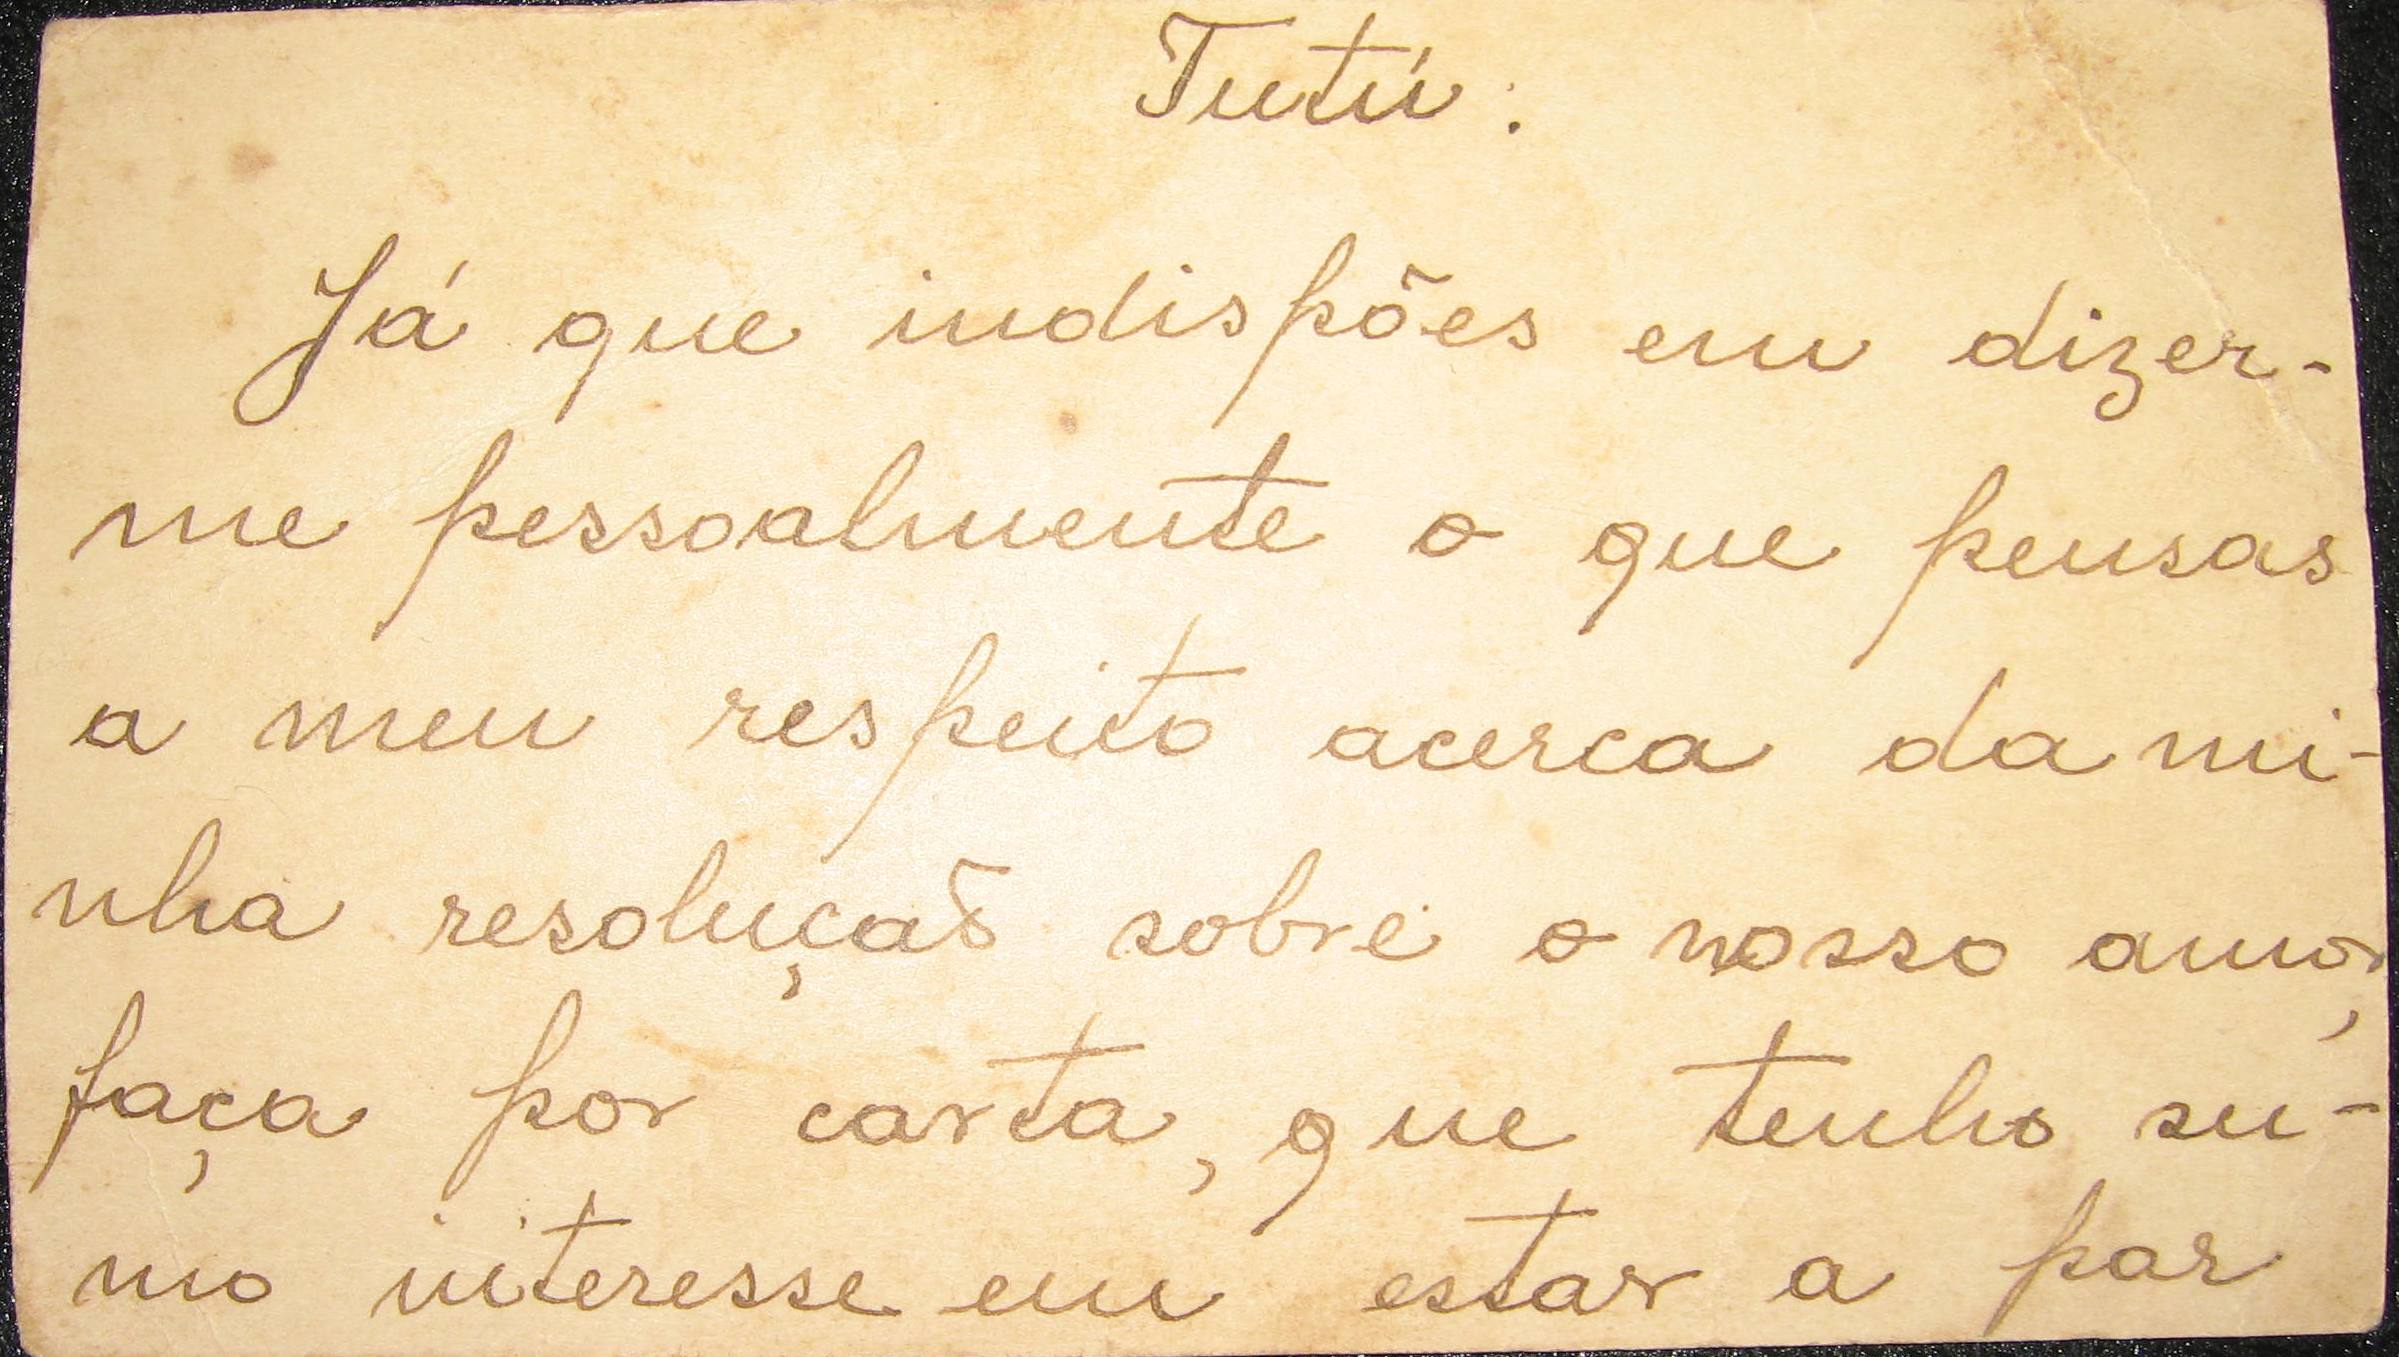 Tutú:
Já que indispões em dizer-
me pessoalmente o que pensas
a meu respeito acerca da mi-
nha resolução sobre o nosso amor,
faça por carta, que tenho su-
mo interesse em estar a par